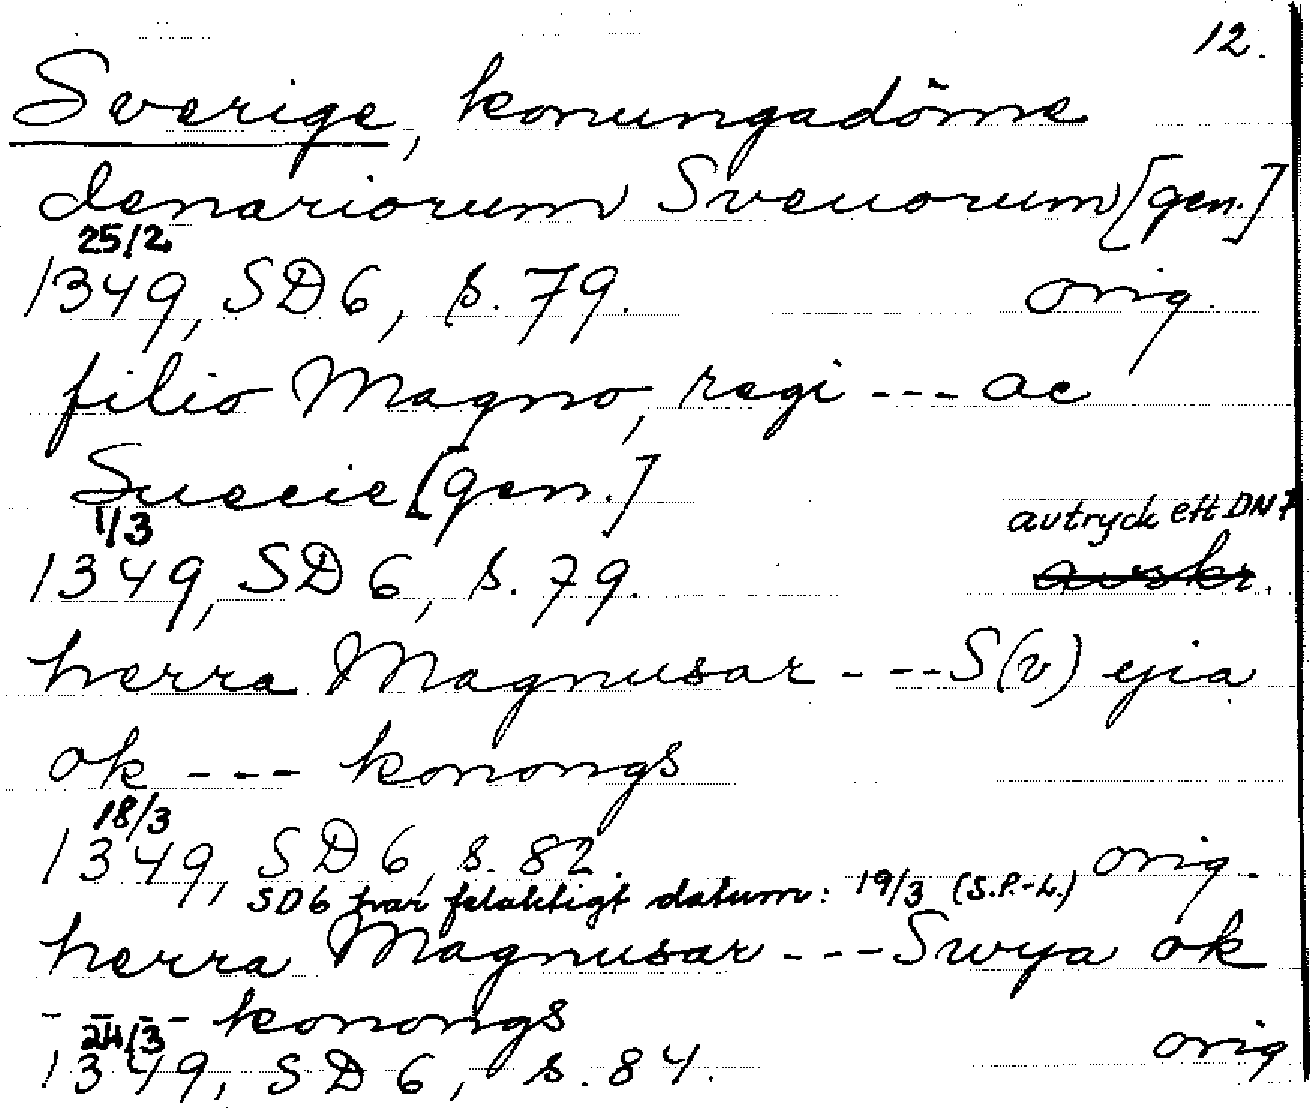 12.
Sverige, konungadöme
denariorum Sveuorum [gen.]
25/2
1349, SD 6, s. 79. orig.
filio Magno, regi --- ac
Suecie [gen.]
1/3 avtryck eft DN 7
1349, SD 6, s. 79. avskr.
herra Magnusar --- S(v) ejia
ok --- konongs
18/3
1349, SD 6, s. 82. orig.
SD6 har felaktigt datum: 19/3 (S.P.-L.)
herra Magnusar --- Swya ok
---- konongs
24/3
1349, SD 6, s. 84. orig